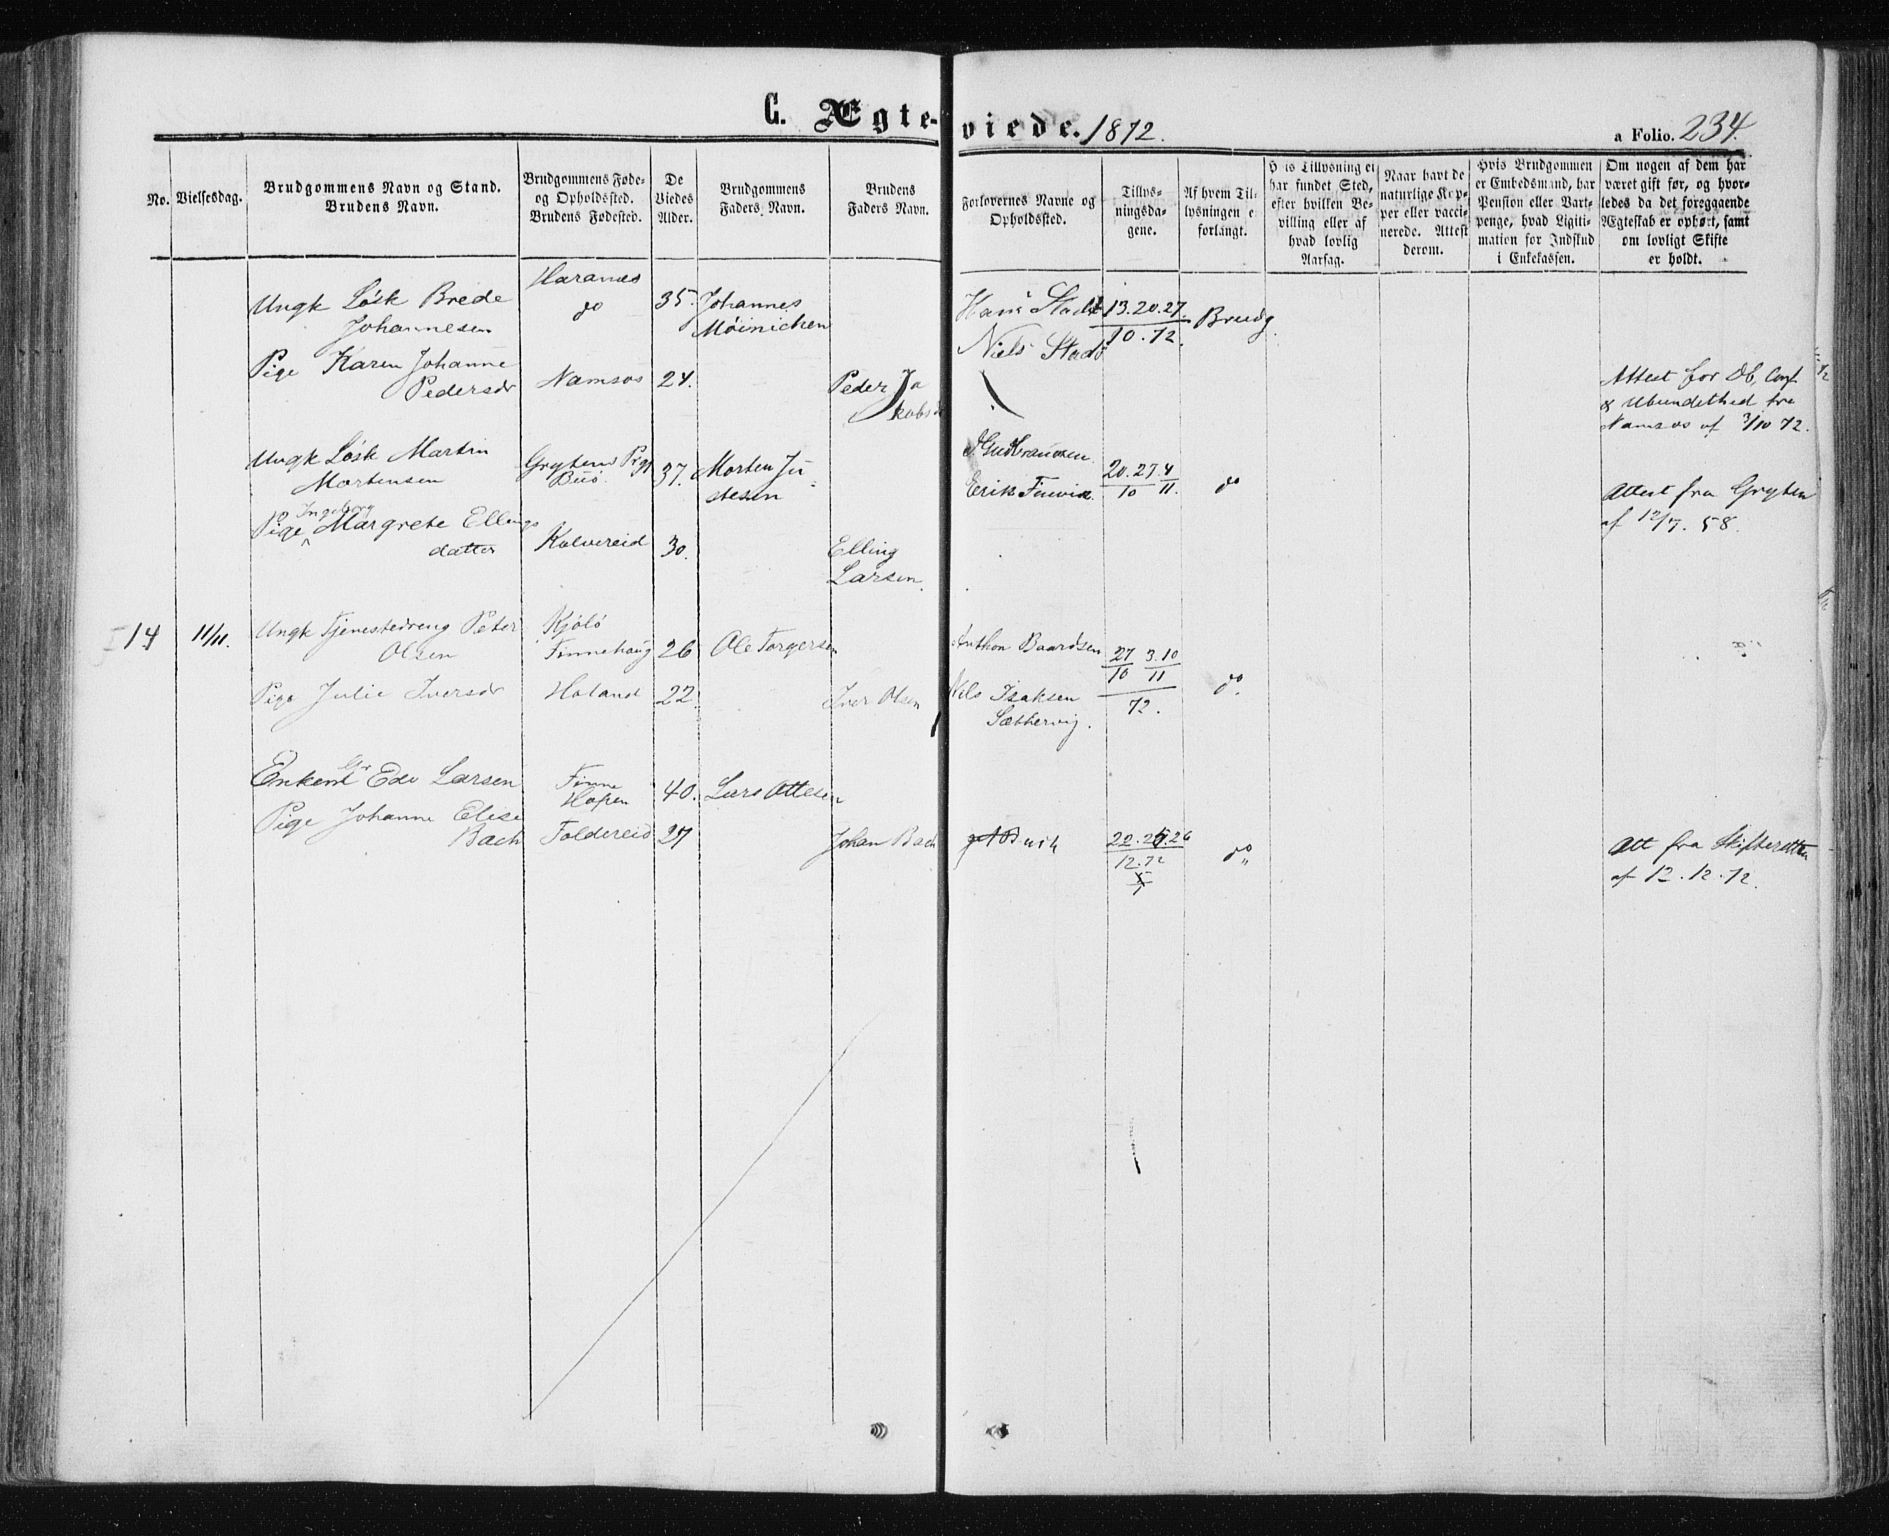 C. Ægte-viede. 1872.
a Folio. 234.
No.
Vielsesdag.
Brudgommens Navn og Stand.
Brudens Navn.
Brudgommens Føde-
og Opholdssted.
Brudens Fødested.
De
Viedes
Alder.
Brudgommens
Faders Navn.
Brudens
Faders Navn.
Forlovernes Navne og
Opholdssted.
Tillys-
ningsda-
gene.
Af hvem Til-
lysningen er
forlangt.
Hvis Tillysning ei
har fundet Sted,
efter hvilken Be-
villing eller af
hvad lovlig
Aarsag.
Naar havt de
naturlige Kop-
per eller vacci-
nerede. Attest
derom.
Hvis Brudgommen
er Embedsmand, har
Pension eller Vart-
penge, hvad Ligiti-
mation for Indskud
i Enkekassen.
Om nogen af dem har
været gift før, og hvor-
ledes da det foregaaende
Ægteskab er ophørt, samt
om lovligt Skifte
er holdt.
Ungk Løsk Brede
Johannesen
do
35.
Johannes
Møinichen
Hans Stadt
Niels Stadt
13.20.27.
10.72.
Brudg.
Pige Karen Johanne
Pedersdr
Namsos
24.
Peder Ja
kobsen
Attest for Db, Conf
& Ubundethed fra
Namsos af 3/10 72.
Ungk Løsk Martin
Mortensen
37.
Morten Ju
stesen
Gudbrandsen
Erik Finvik
20.27.4
10 11.
do
Attest fra Grytten
af 12/7. 58.
Pige Ingeborg Margrete Ellings
datter
Kolvereid
30.
Elling
Larsen
14
11/11.
Ungk Tjenestedreng Peter
Olsen
Kjølø
Finnehaug
26
Ole Torgersen
Anthon Baardsen
27 3.10
10 11
72.
do
Pige Julie Iversdr
Høland
22
Iver Olsen
Nils Isaksen
Sæthervig.
Enkem Gr Ede Larsen
Finne
Hopen
40.
Lars Ottesen
Pige Johanne Elise
Bach
Foldereid
27
Johan Bach
22.25.26
12.72
do
Att fra Skifteretten
af 12.12.72.